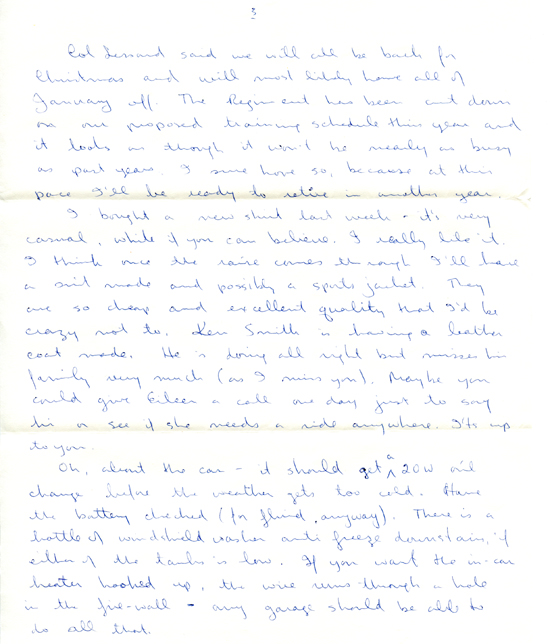 5
Col Lessard said we will all be back for
Christmas and will most likely have all of
January off. The Regiment has been cut down
on our proposed training schedule this year and
it looks as though it won't be nearly as busy
as past years. I sure hope so, because at this
pace I'll be ready to retire in another year.
I bought a new shirt last week - it's very
casual, white if you can believe. I really like it.
I think once the raise comes through I'll have
a suit made and possibly a sports jacket. They
are so cheap and excellent quality that I'd be
crazy not to. Ken Smith is having a leather
coat made. He is doing all right but misses his
family very much (as I miss you). Maybe you
could give Eileen a call one day just to say
hi or see if she needs a ride anywhere. It's up
to you.
Oh, about the car - it should get a 20W oil
change before the weather gets too cold. Have
the battery checked (for fluid, anyway). There is a
bottle of windshield washer anti freeze downstairs, if
either of the tanks is low. If you want the in-car
heater hooked up, the wire runs through a hole
in the fire-wall - any garage should be able to
do all that.